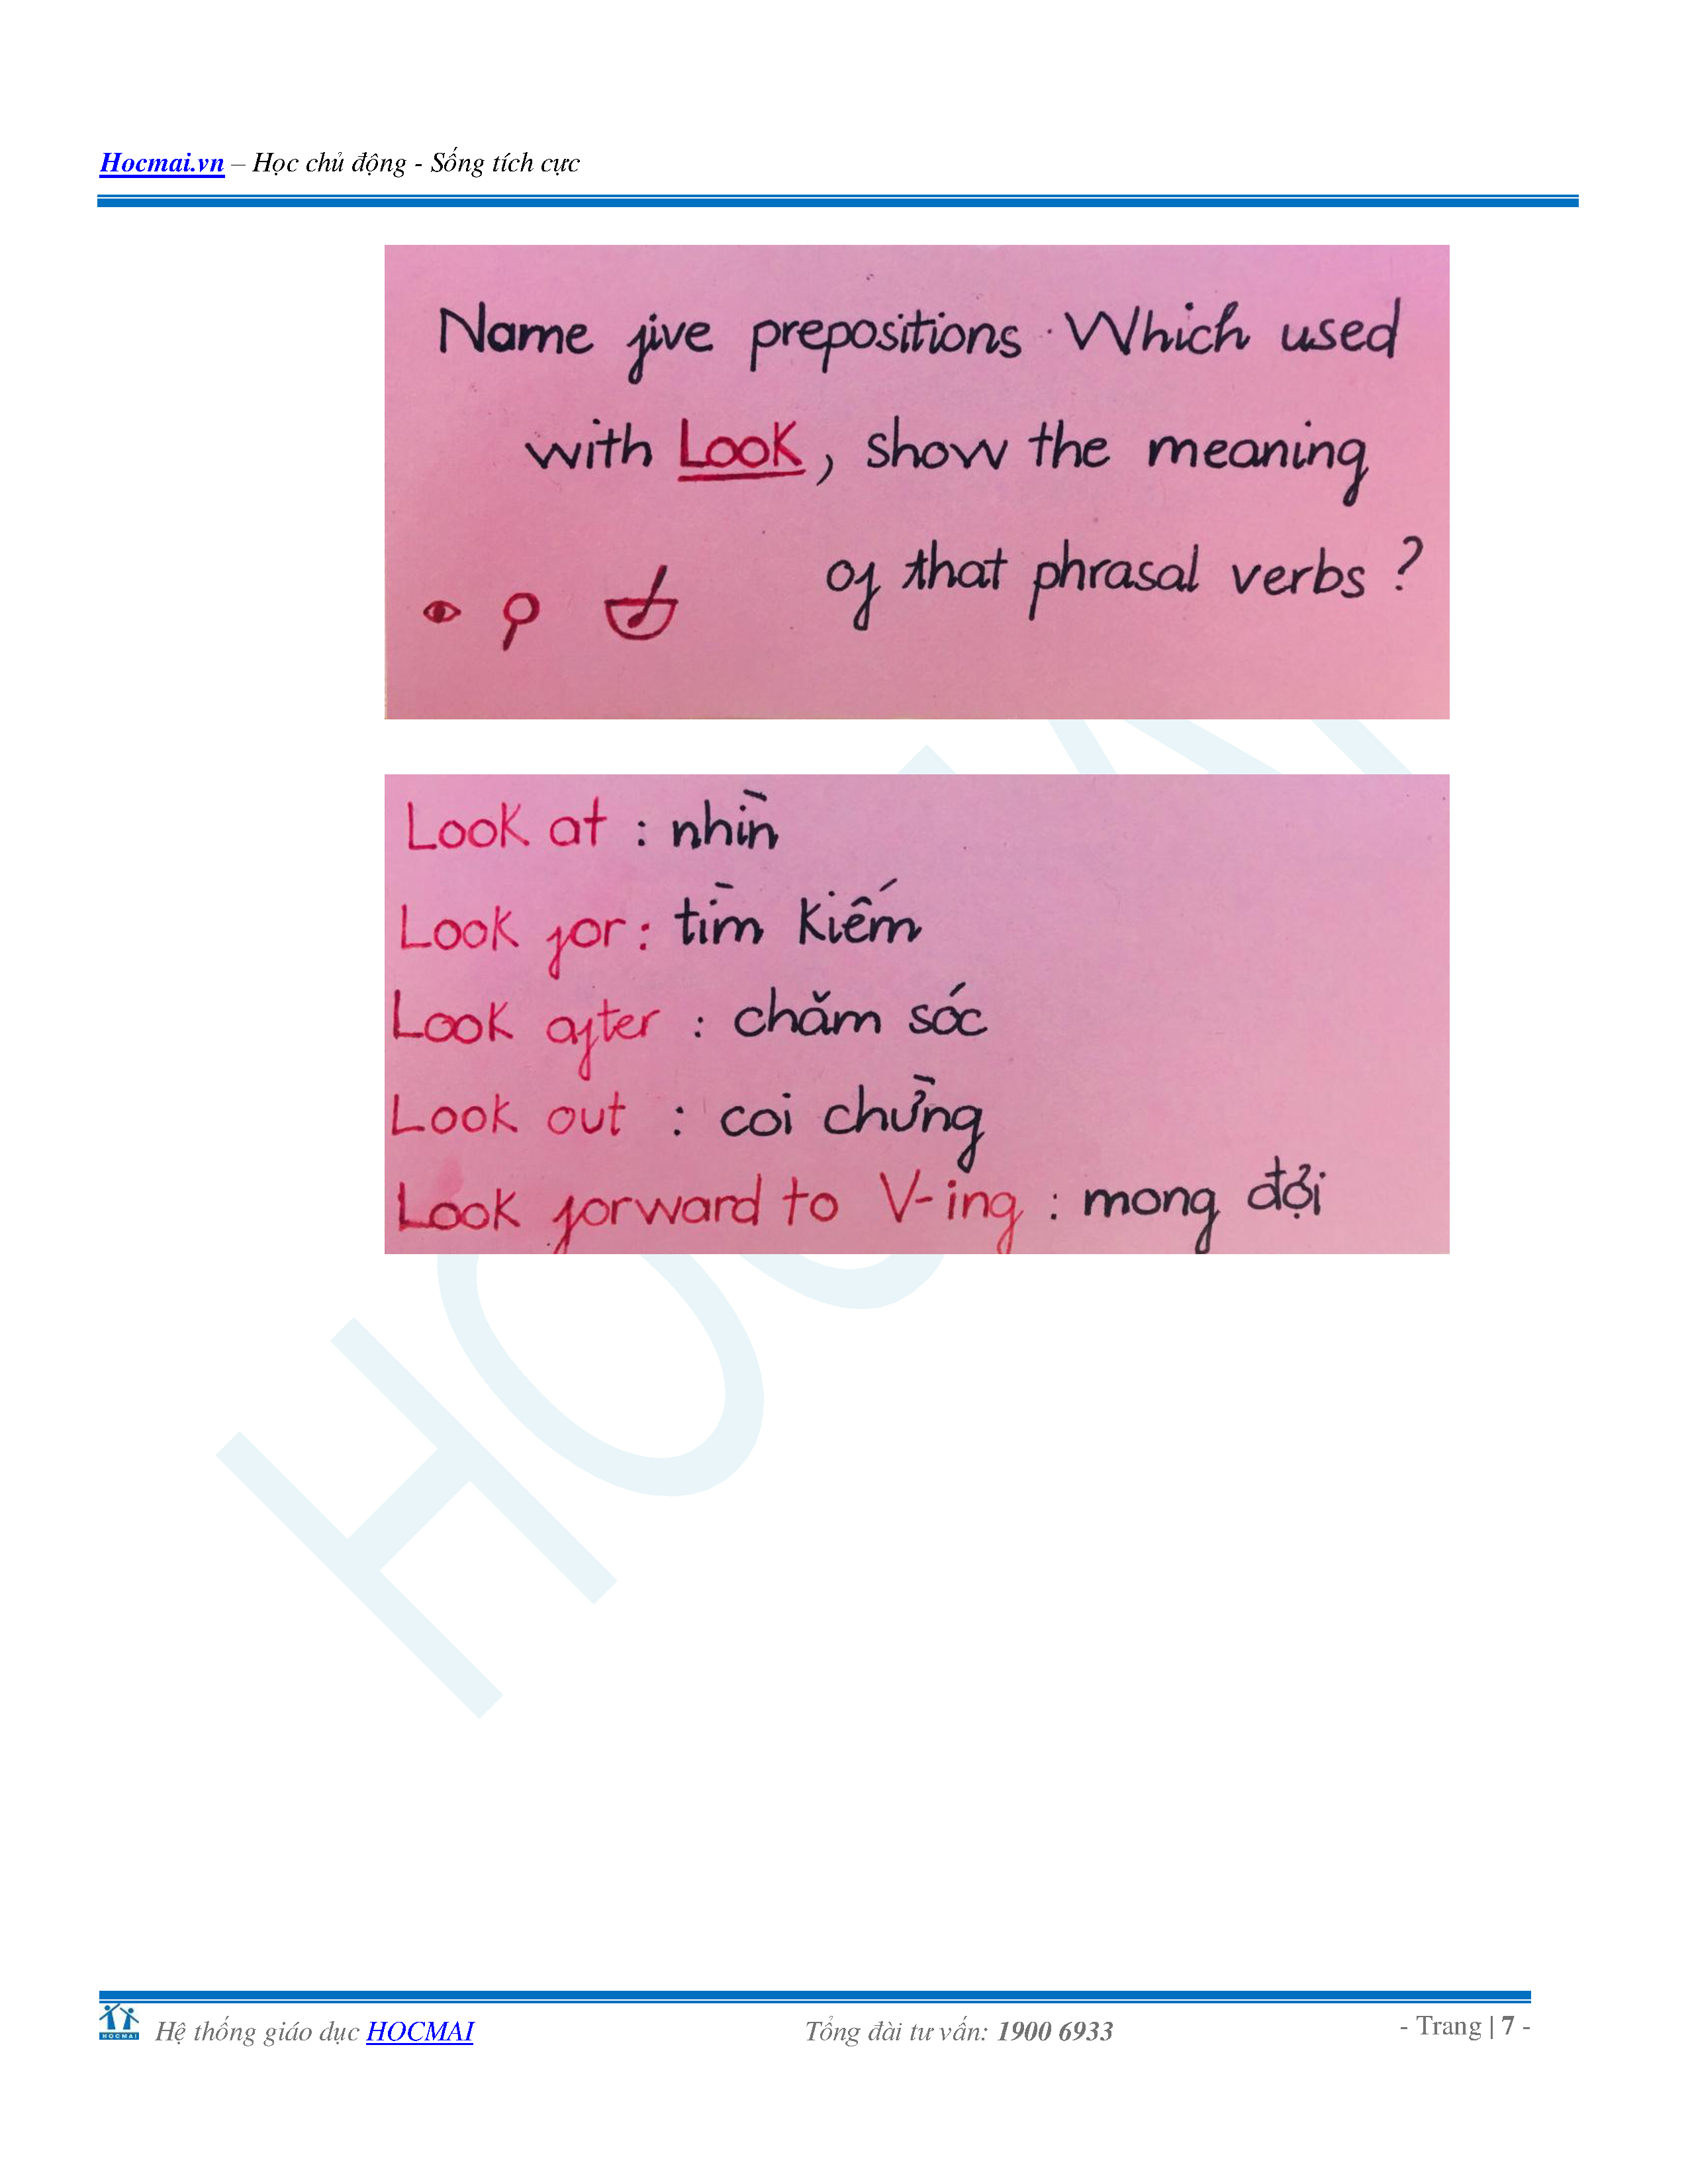 Hocmai.vn – Học chủ động - Sống tích cực
Name five prepositions Which used
with Look, show the meaning
of that phrasal verbs ?
Look at : nhìn
Look for : tìm kiếm
Look after : chăm sóc
Look out : coi chừng
Look forward to V-ing : mong đợi
HOCMAI
Hệ thống giáo dục HOCMAI
Tổng đài tư vấn: 1900 6933
- Trang | 7 -